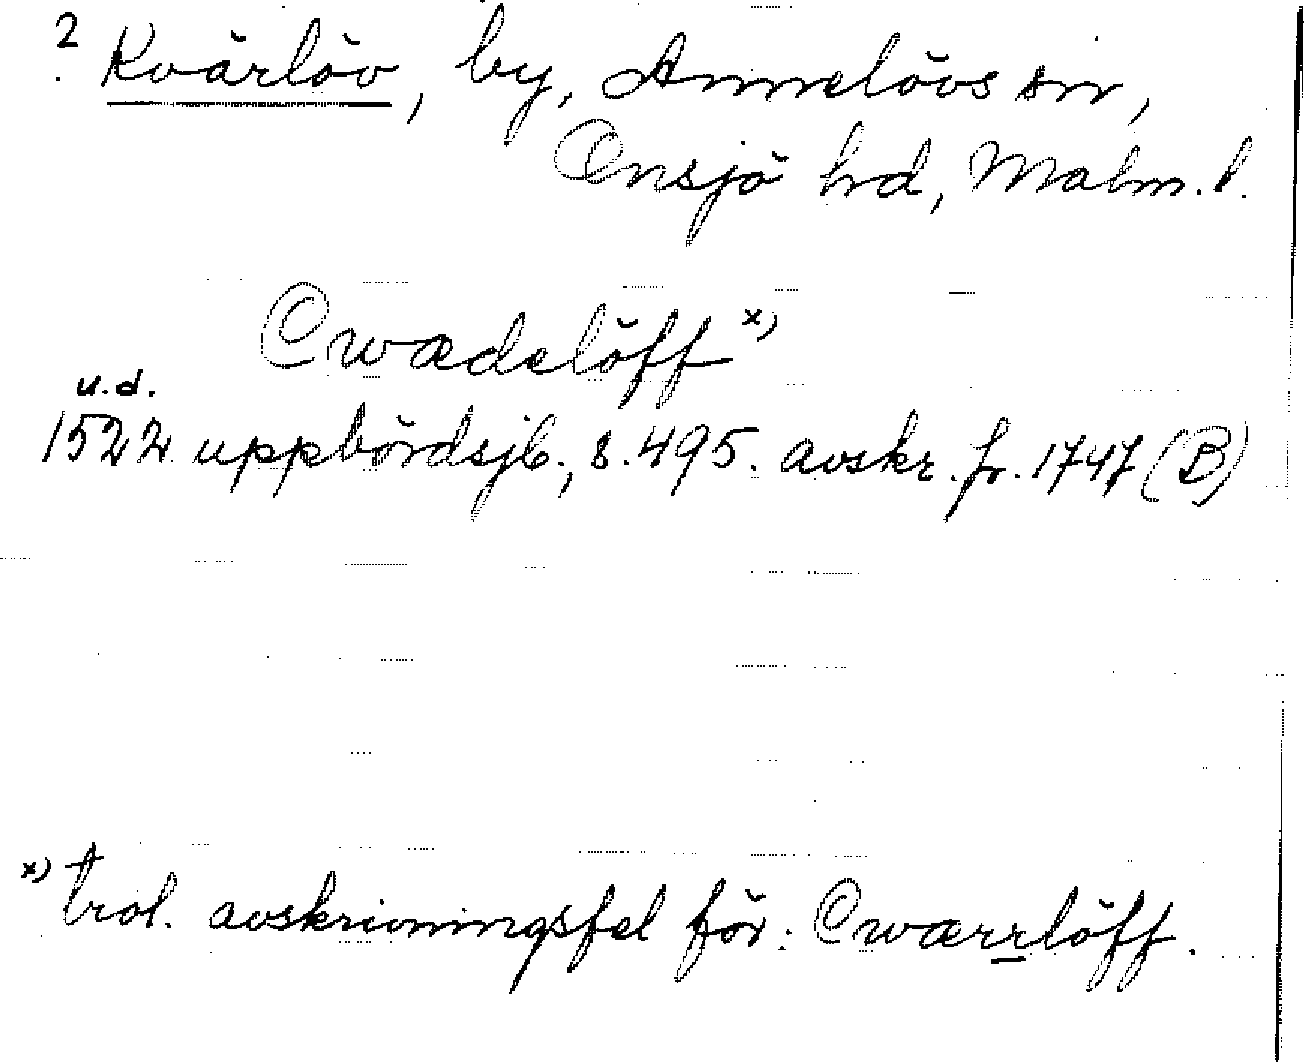 ? Kvärlöv, by, Annelövs sn,
Onsjö hd, Malm. l.
Cwædelöff x)
u.d.
1522 uppbördsjb., s. 495. avskr. fr. 1747 (B)
x) trol. avskrivningsfel för: Cwærrlöff.